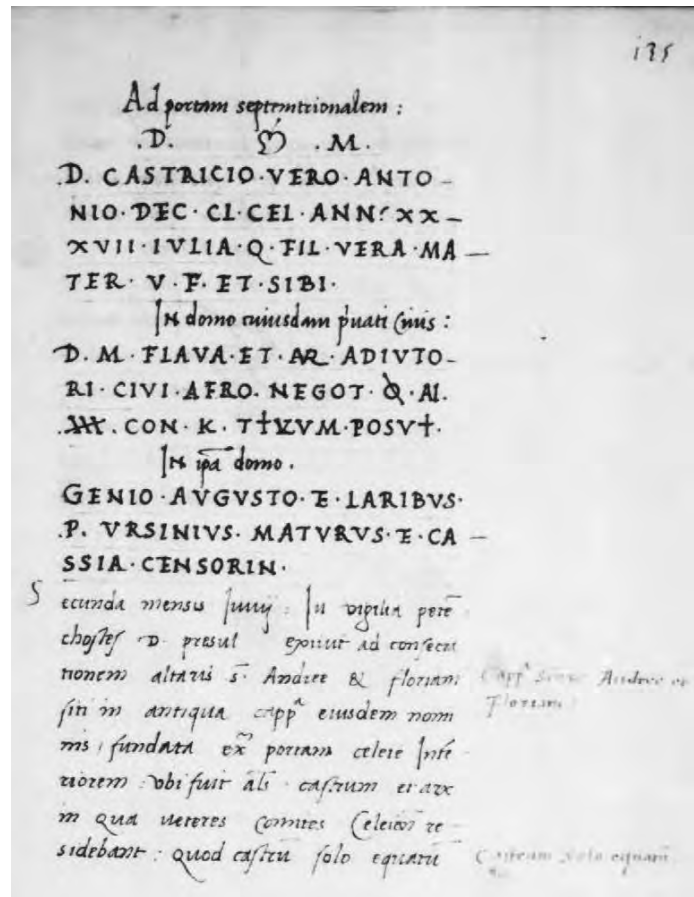 135
Ad portam septemtrionalem :
.D. M .M.
.D. CASTRICIO·VERO·ANTO-
NIO·DEC·CL·CEL·ANN·XX-
XVII·IVLIA·Q·FIL·VERA·MA-
TER·V·F·ET·SIBI·
IN domo cuiusdam p̄uati Ciuis :
D.M·FLAVA·ET·AR·ADIVTO-
RI·CIVI·AFRO·NEGOT·
CON·K·
IN ip̄a domo.
GENIO·AVGVSTO·E·LARIBVS·
.P. VRSINIVS·MATVRVS·E·CA-
SSIA·CENSORIN·
Secunda mensis Junij : In vigilia pete
chostes D. presul exiuit ad consecra
tionem altaris s. Andree & floriani
Capp.ᵃ Andree et
siti in antiqua capp.ᵃ eiusdem nomi
Floriani
nis, fundata portam celeie Infe
riorem : vbi fuit al̄s castrum et arx
in qua ueteres Comites Celeieñ re
sidebant : quod castrū solo equatū
Castrum solo equatū